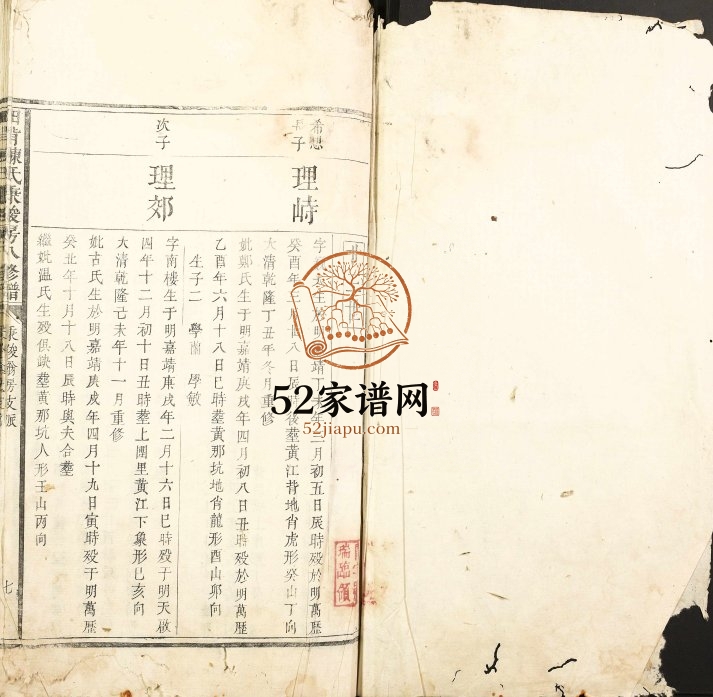 希想
長子
理峙
字 生於明嘉靖丁未年二月初五日辰時殁於明萬歷
癸酉年 月 八日辰時 葬黃江背地肖虎形癸山丁向
大清乾隆丁丑年冬月重修
妣鄭氏生于明嘉靖庚戌年四月初八日丑時殁於明萬歷
乙酉年六月十八日巳時葬黃那坑地肖龍形酉山卯向
生子二 學蘭 學敏
次子
理郊
字南樓生于明嘉靖庚戌年二月十六日巳時殁于明天啟
四年十二月初十日丑時葬上團里黃江下象形巳亥向
大清乾隆己未年十一月重修
妣古氏生於明嘉靖庚戌年四月十九日寅時殁于明萬歷
癸丑年十月十八日辰時與夫合葬
繼妣溫氏生殁俱缺葬黃那坑人形壬山丙向
陳氏秉俊房八修譜
秉俊翁房支派
七
52家谱网
52jiapu.com
瑞臨領